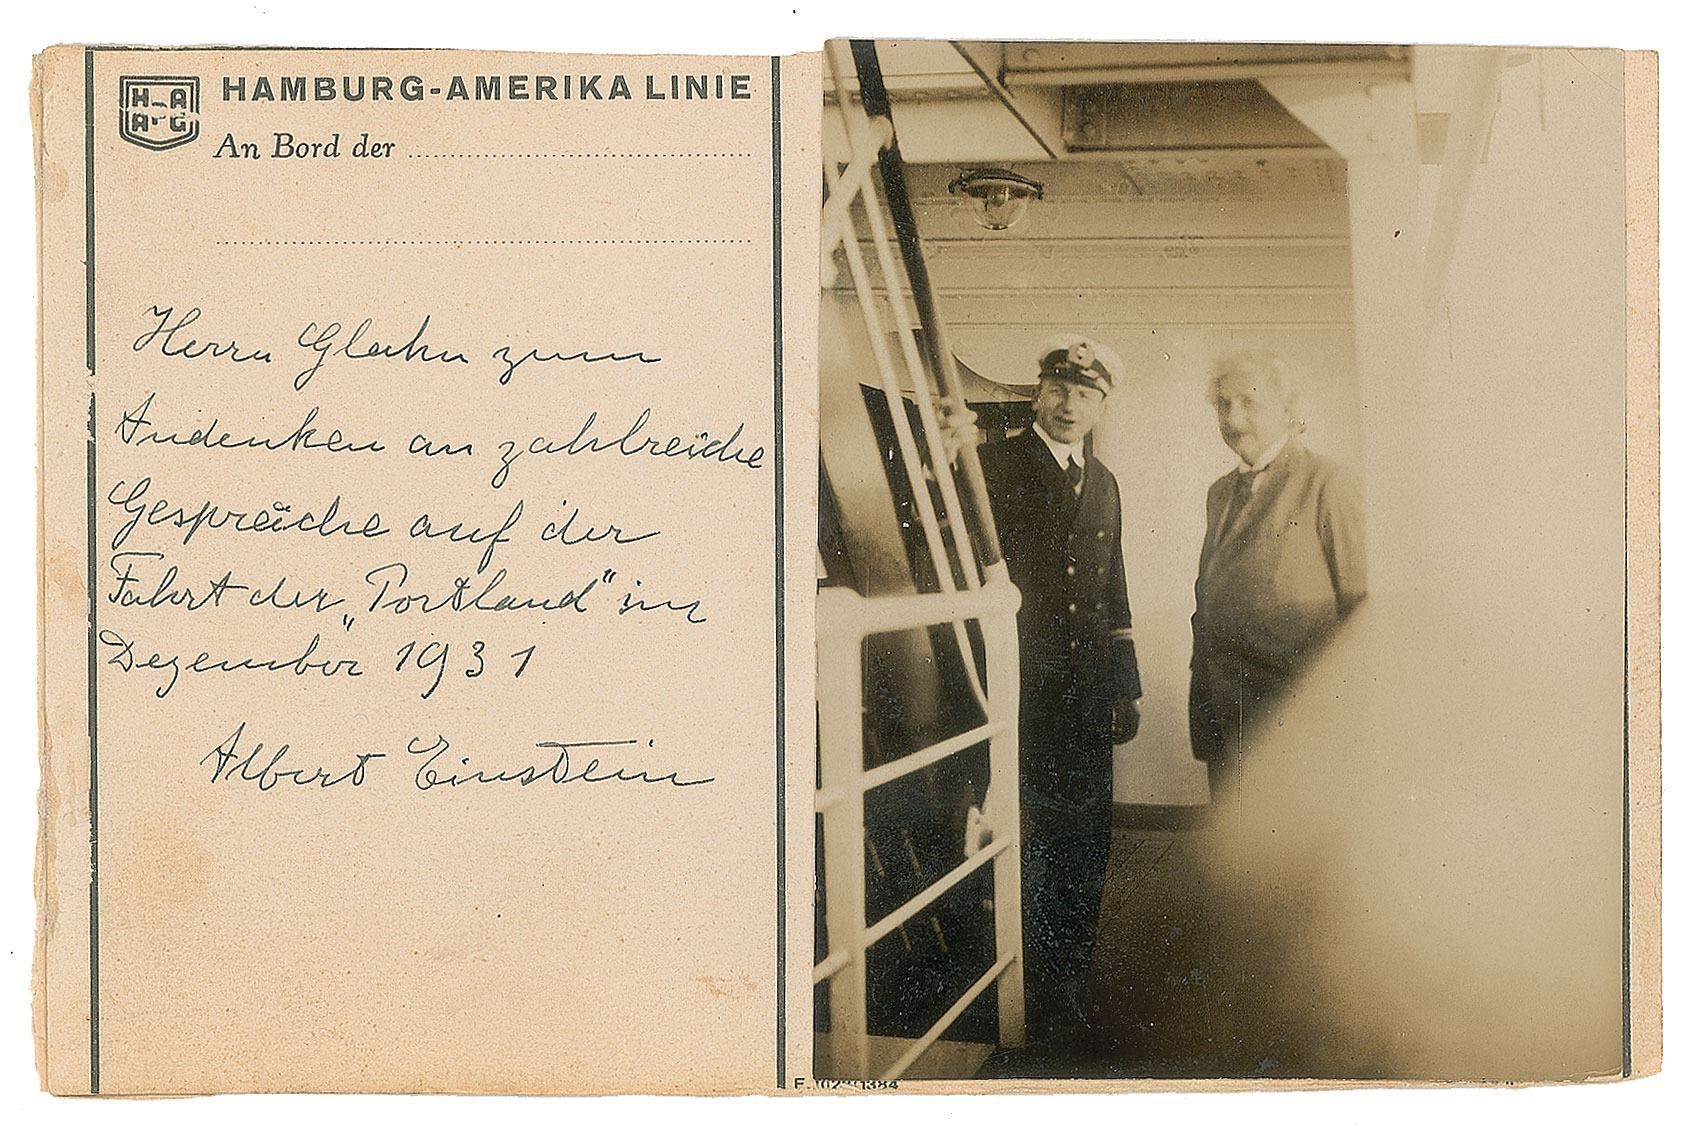 HAPAG
HAMBURG-AMERIKA LINIE
An Bord der
Herrn Glahn zum
Andenken an zahlreiche
Gespräche auf der
Fahrt der „Portland" im
Dezember 1931
Albert Einstein